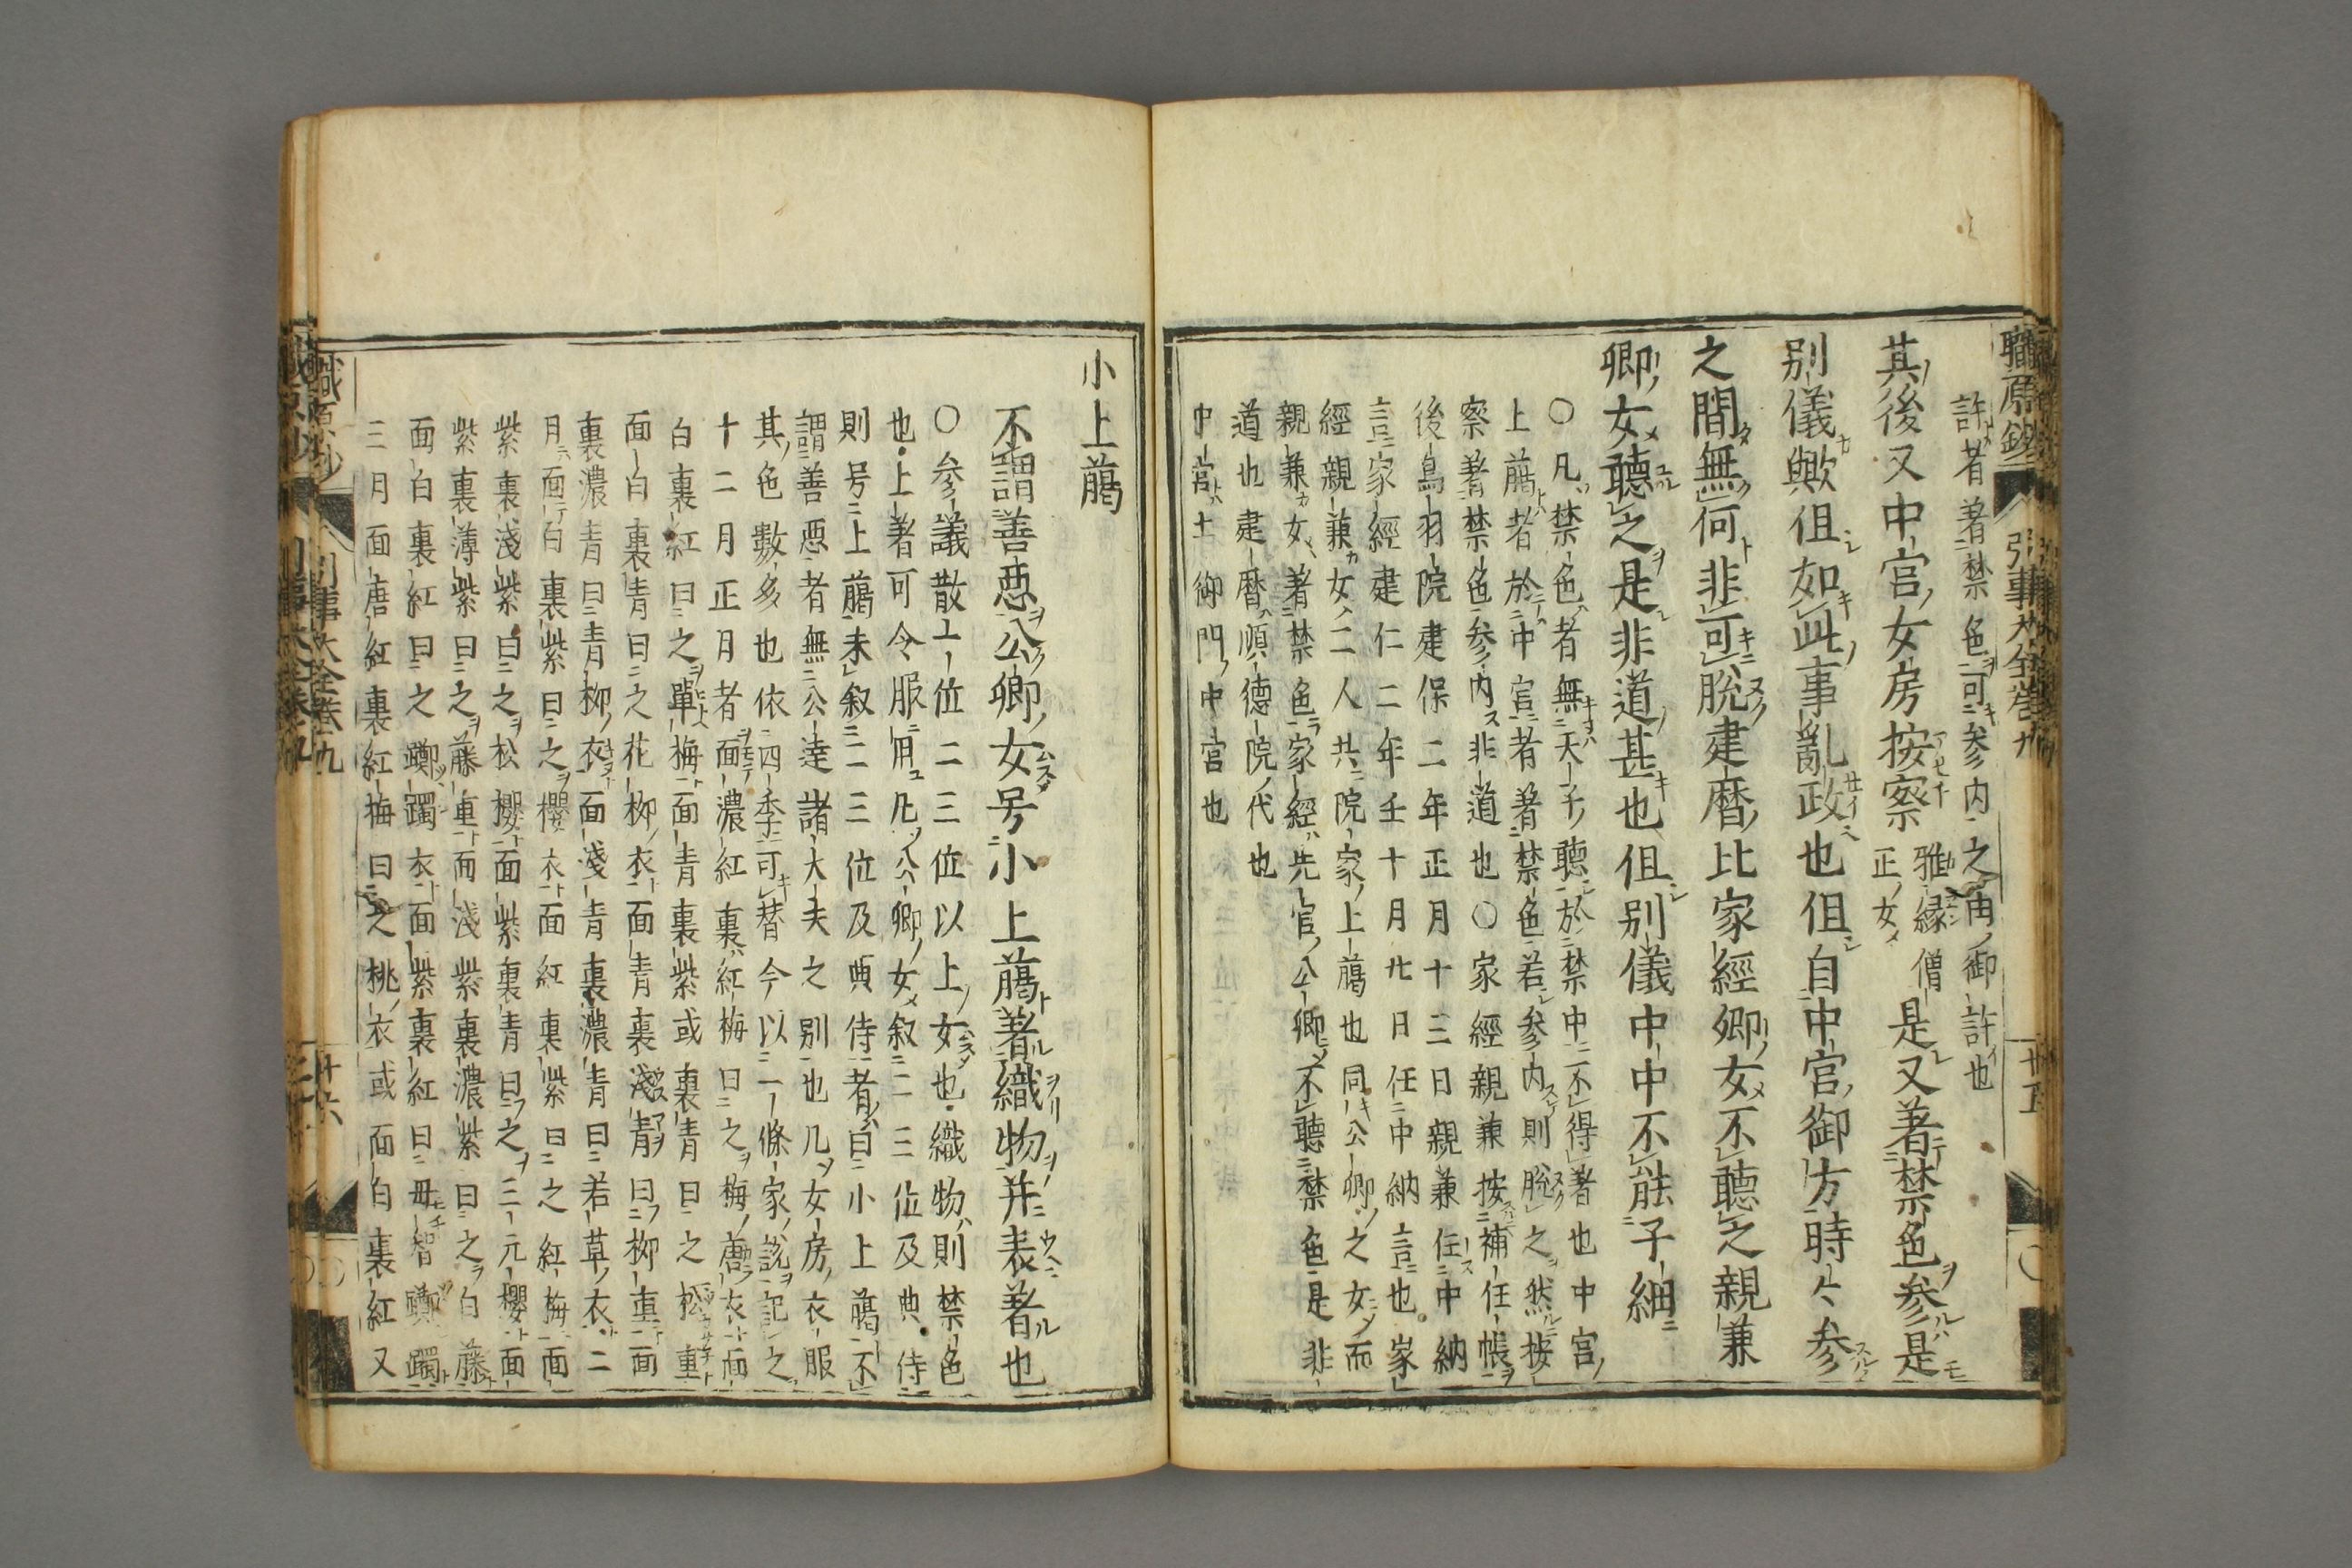 職原鈔 引事大全卷九 廿五
許者著禁色可参内之由御許也
其後又中宮女房按察雅縁僧正女是又著禁色参是
別儀歟但如此事亂政也但自中宮御方時々参
之間無何非可脱建暦比家經卿女不聴之親兼
卿女聴之是非道甚也但別儀中中不能子細
〇凡禁色者無天子聴於禁中不得著也中宮
上﨟者於中宮者著禁色若参内則脱之然按
察著禁色参内非道也〇家經親兼按補任帳
後鳥羽院建保二年正月十三日親兼任中納
言家經建仁二年壬十月廿日任中納言也家
經親兼女二人共院家上﨟也同公卿之女而
親兼女著禁色家經先官公卿不聴禁色是非
道也建暦順徳院代也
中宮土御門中宮也
小上﨟
不謂善悪公卿女号小上﨟著織物并表著也
〇参議散二位三位以上女也織物則禁色
也上著可令服用凡公卿女叙二三位及典侍
則号上﨟未叙二三位及典侍者曰小上﨟不
謂善悪者無公達諸大夫之別也凡女房衣服
其色數多也依四季可替今以一條家説記之
十二月正月者面濃紅裏紅梅曰之梅唐衣面
白裏紅曰之單梅面青裏紫或裏青曰之松重
面白裏青曰之花柳衣面青裏淺青曰柳重面
裏濃青曰青柳衣面淺青裏濃青曰若草衣二
月面白裏紫曰之櫻衣面紅裏紫曰之紅梅面
紫裏淺紫曰之松櫻面紫裏青曰之三元櫻面
紫裏薄紫曰之藤重面淺紫裏濃紫曰之白藤
面白裏紅曰之躑躅衣面紫裏紅曰毋智躑躅
三月面唐紅裏紅梅曰之桃衣或面白裏紅又
職原鈔 引事大全卷九 廿六